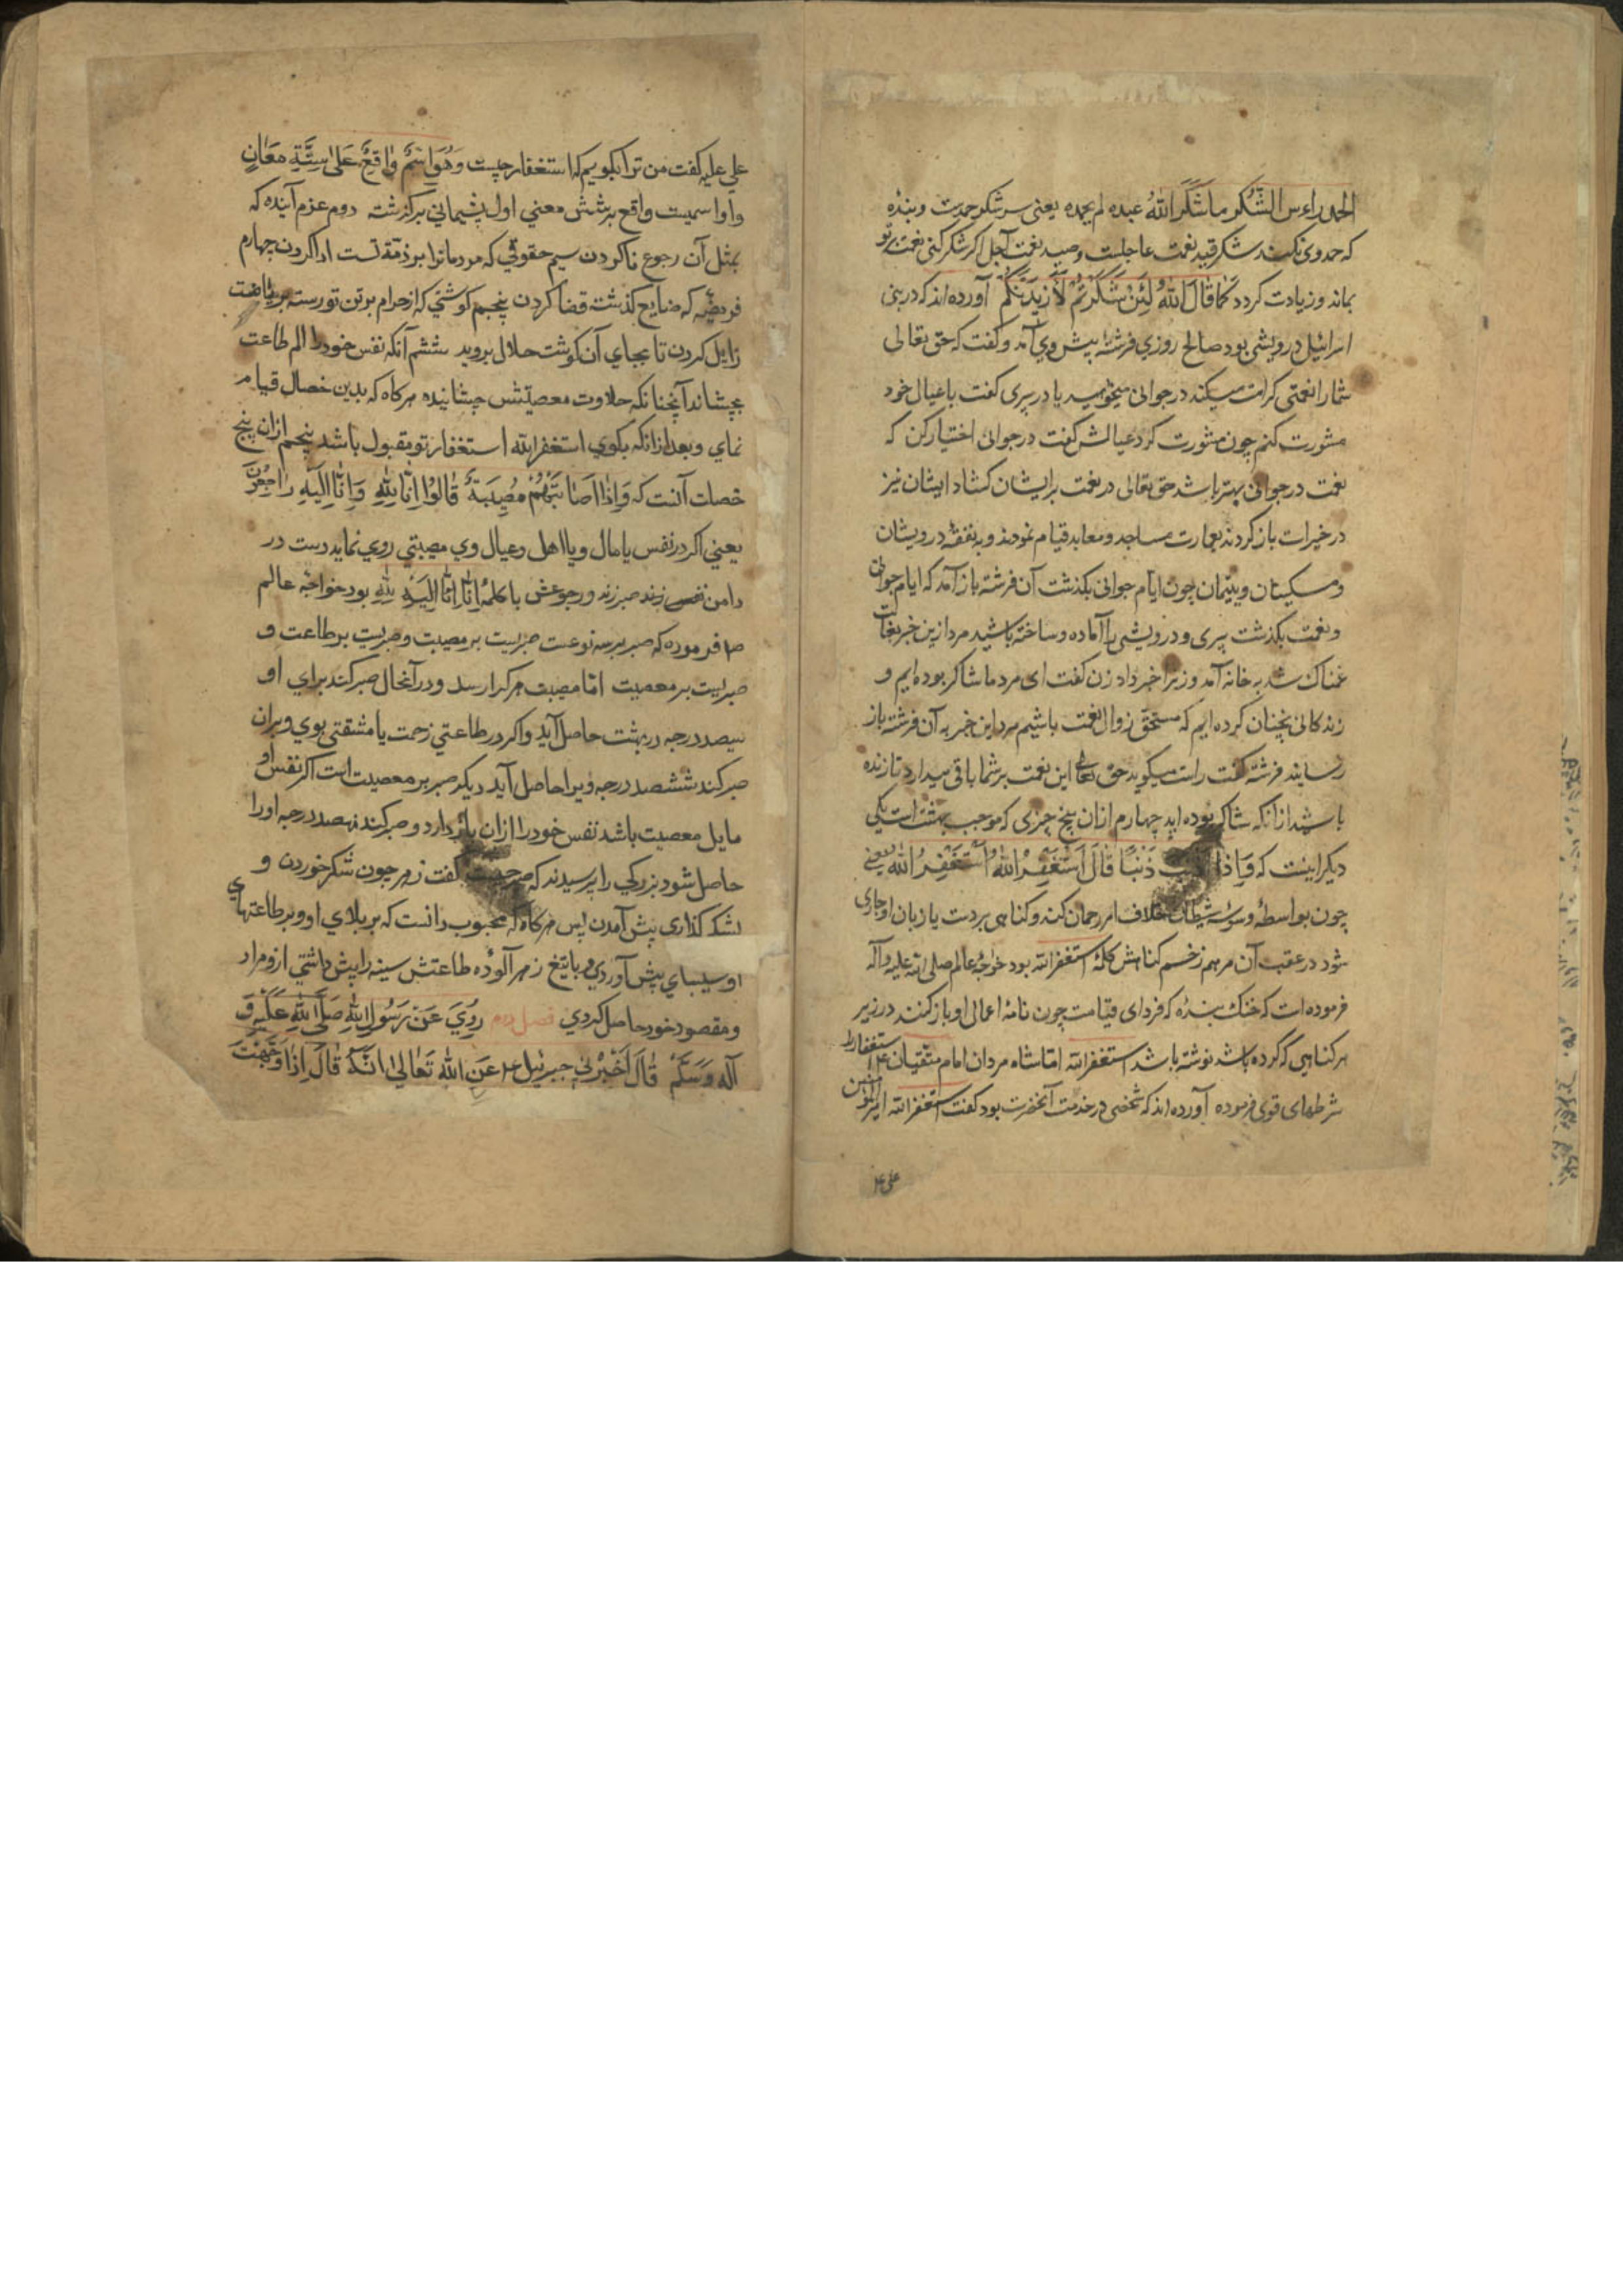 الحمد راءس الشّكر ما شَكَرَ اللهُ عبده لم یحمده یعنی سر شکر حمدیت و بنده
که حمد وی نکند شکر قید نعمت عاجلست و صید نعمت آجل اگر شکر کنی نعمت بر تو
بماند و زیادت کردد کَمٰا قٰالَ اللهُ لَئِنْ شَکَرْتُمْ لَاَزیدَنَّکُمْ آورده‌اند که در بنی
اسرائیل درویشی بود صالح روزی فرشته پیش وی آمد و گفت که حق تعالی
شما را نعمتی کرامت میکند در جوانی میخواهید یا در پیری کفت با عیال خود
مشورت کنم چون مشورت کرد عیالش کفت در جوانی اختیار کن که
نعمت در جوانی بهتر باشد حق تعالی در نعمت بر ایشان کشاد ایشان نیز
در خیرات باز کردند بعمارت مساجد و معابد قیام نمودند و به نفقه درویشان
و مسکینان و یتیمان چون ایام جوانی بکذشت آن فرشته باز آمد که ایام جوانی
و نعمت بکذشت پیری و درویشی را آماده و ساخته باشید مرد ازین خبر بغایت
غمناک شد به خانه آمد و زنرا خبر داد زن کفت ای مرد ما شاکر بوده‌ایم و
زندکانی نچنان کرده‌ایم که مستحق زوال نعمت باشیم مرد این خبر به آن فرشته باز
رسانید فرشته کفت راست میکوید حق تعالی این نعمت بر شما باقی میدارد تا زنده
باشید از آنکه شاکر بوده‌اید چهارم از آن پنج چیزی که موجب بهشت است یکی
دیکر اینست که وَ اِذٰا ذَنْبًا قٰالَ اَسْتَغْفِرُ اللهَ اَسْتَغْفِرُ اللهَ یعنی
چون بواسطهٔ وسوسهٔ شیطان خلاف امر رحمان کند و کناهی بر دست یا زبان او جاری
شود در عقب آن مرهم زخم کناهش کلمهٔ استغفر الله بود خواجهٔ عالم صلی الله علیه و آله
فرموده است که خنک بنده که فردای قیامت چون نامهٔ اعمال او باز کنند در زیر
هر کناهی که کرده باشد نوشته باشد استغفر الله امّا شاه مردان امام متقیان ع استغفار را
شرطهای قوی فرموده آورده‌اند که شخصی در خدمت آنحضرت بود کفت استغفر الله امیر المؤمنین
علی ع
علی علیه کفت من ترا بکویم که استغفار چیست وَ هُوَ اِسْمٌ وٰاقِعٌ عَلیٰ سِتَّةِ مَعٰانٍ
و او اسمیست واقع بر شش معنی اول پشیمانی بر کذشته دوم عزم آینده که
بمثل آن رجوع نا کردن سیم حقوقی که مردمانرا بر ذمّهٔ تست ادا کردن چهارم
فریضه که ضایع کذشته قضا کردن پنجم کوشتی که از حرام بر تن تو رسته بریاضت
زایل کردن تا بجای آن کوشت حلال بروید ششم آنکه نفس خود را الم طاعت
بچشاند آنچنانکه حلاوت معصیتش چشانیده هرکاه که بدین خصال قیام
نمای و بعد از آنکه بکوی استغفر الله استغفار تو مقبول باشد پنجم از آن پنج
خصلت آنست که وَ اِذٰا اَصٰابَتْهُمْ مُصِیبَةٌ قٰالُوا اِنّٰا لِلّٰهِ وَ اِنّٰا اِلَیْهِ رٰاجِعُونَ
یعنی اکر در نفس یا مال و یا اهل و عیال وی مصیبتی روی نماید دست در
دامن نفس زند صبر زند و رجوعش با کلمهٔ انّا اِنّا اِلَیْهِ لِلّٰهِ بود خواجهٔ عالم
ص فرموده که صبر بر سه نوعست صبریست بر مصیبت و صبریست بر طاعت و
صبریست بر معصیت امّا مصیبت هرکرا رسد و در آنحال صبر کند برای او
سیصد درجه در بهشت حاصل آید و اکر در طاعتی زحمت یا مشقتی بوی و بر آن
صبر کند ششصد درجه ویرا حاصل آید دیکر صبر بر معصیت است اکر نفس او
مایل معصیت باشد نفس خود را از آن باز دارد و صبر کند نهصد درجه او را
حاصل شود بزرکی را پرسیدند که صبر چیست کفت زهر چون شکر خوردن و
لشکر کذاری پیش آمدن پس هرکاه که محبوب دانست که بر بلای او و بر طاعتهای
او سیبای پیش آوردی و با تیغ زهر آلوده طاعتش سینه را پیش داشتی از و مراد
و مقصود خود حاصل کردی فصل دوم رُوِیَ عَنْ رَسُولِ اللهِ صَلَّی اللهُ عَلَیْهِ وَ
آلِهِ وَسَلَّمَ قٰالَ اَخْبَرَنِی جبرئیل ع عَنِ اللهِ تَعٰالیٰ انَّهُ قٰالَ اِذٰا وَجَّهْتُ